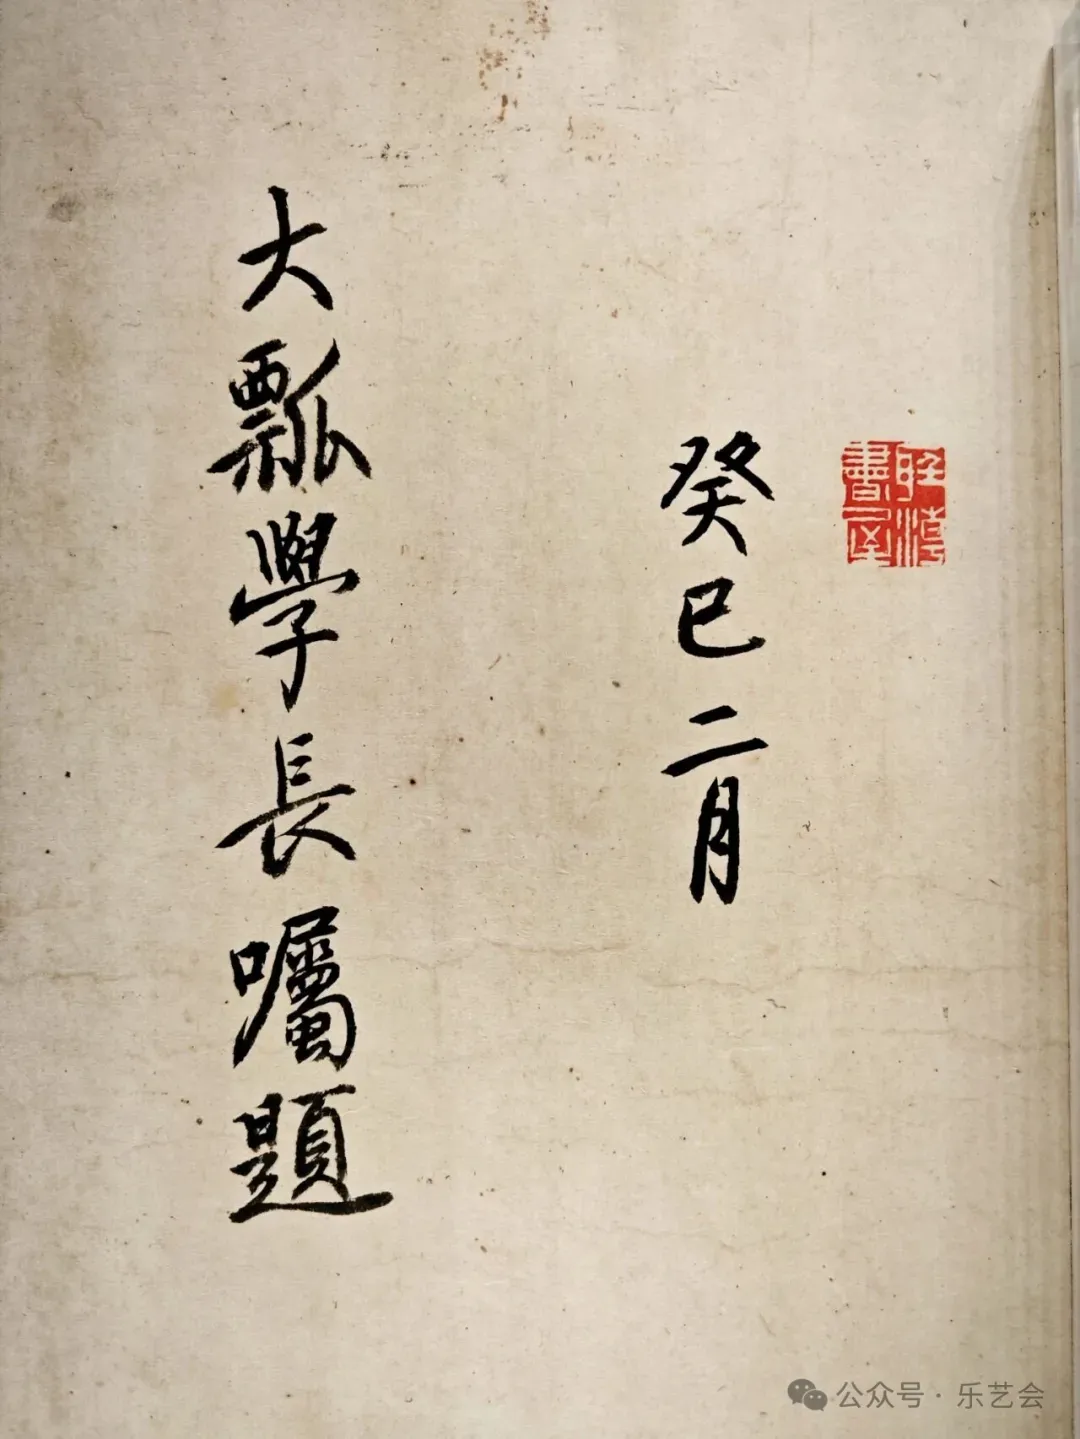 癸巳二月
大瓢學長囑題
公众号·乐艺会